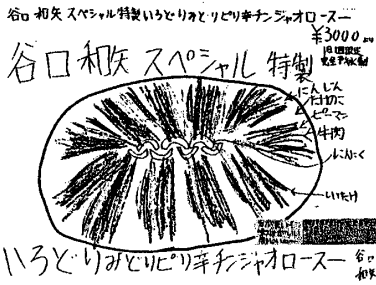 谷口 和矢 スペシャル特製いろどりみどりピリ辛チンジャオロースー
¥3000
谷口 和矢 スペシャル 特製
にんじん
たけのこ
ピーマン
牛肉
にんにく
しいたけ
いろどりみどりピリ辛チンジャオロースー
谷口
和矢